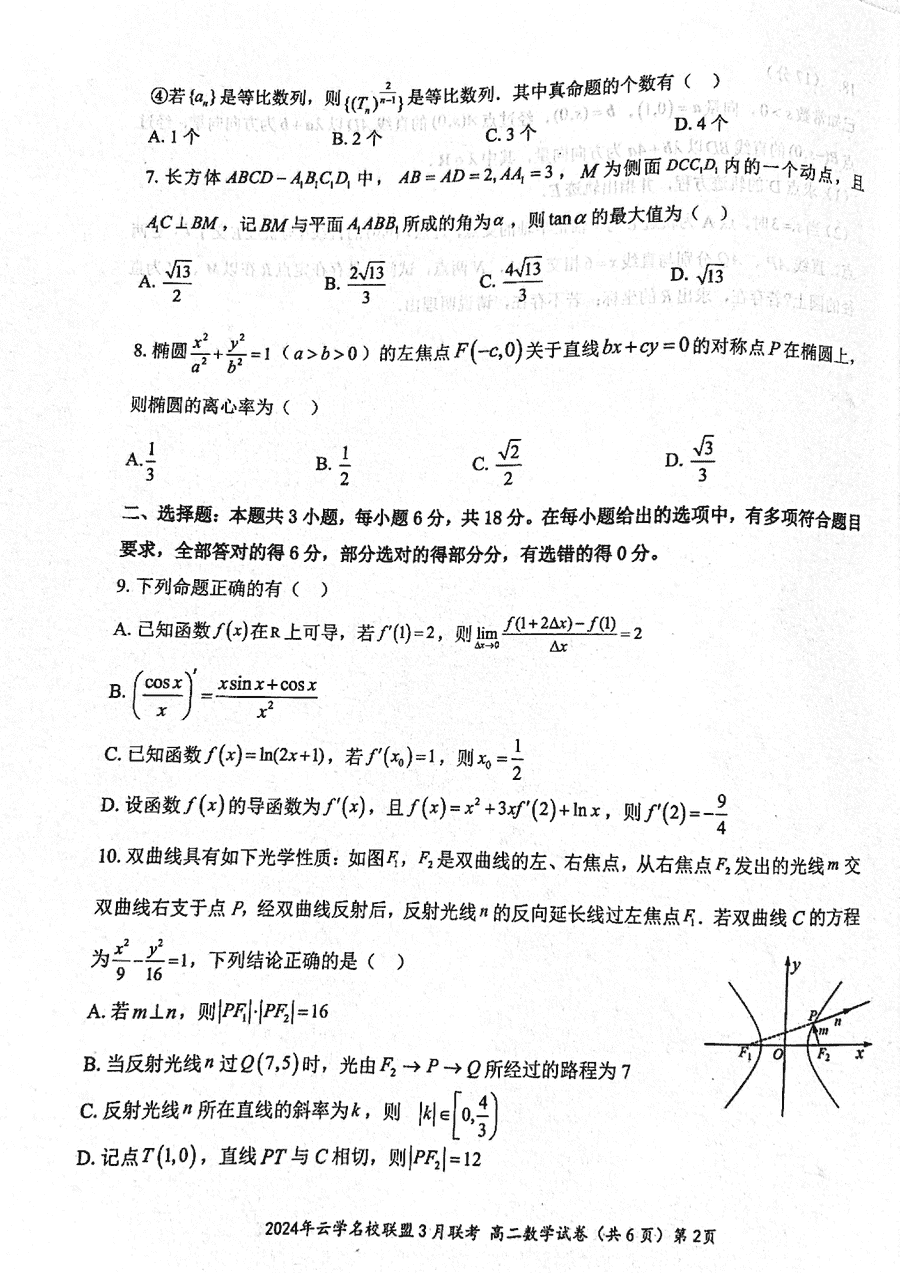 ④若{aₙ}是等比数列，则{(Tₙ)^{2/(n-1)}}是等比数列．其中真命题的个数有（ ）
A. 1个 B. 2个 C. 3个 D. 4个
7. 长方体 ABCD－A₁B₁C₁D₁ 中，AB＝AD＝2, AA₁＝3，M 为侧面 DCC₁D₁ 内的一个动点，且
A₁C⊥BM，记 BM 与平面 A₁ABB₁ 所成的角为 α，则 tan α 的最大值为（ ）
A. √13/2 B. 2√13/3 C. 4√13/3 D. √13
8. 椭圆 x²/a²+y²/b²=1（a>b>0）的左焦点 F(-c,0) 关于直线 bx+cy=0 的对称点 P 在椭圆上,
则椭圆的离心率为（ ）
A. 1/3 B. 1/2 C. √2/2 D. √3/3
二、选择题：本题共 3 小题，每小题 6 分，共 18 分。在每小题给出的选项中，有多项符合题目
要求，全部答对的得 6 分，部分选对的得部分分，有选错的得 0 分。
9. 下列命题正确的有（ ）
A. 已知函数 f(x) 在 R 上可导，若 f′(1)=2，则 lim_{Δx→0} (f(1+2Δx)-f(1))/Δx=2
B. (cos x/x)′=(x sin x+cos x)/x²
C. 已知函数 f(x)=ln(2x+1)，若 f′(x₀)=1，则 x₀=1/2
D. 设函数 f(x) 的导函数为 f′(x)，且 f(x)=x²+3xf′(2)+ln x，则 f′(2)=-9/4
10. 双曲线具有如下光学性质：如图 F₁，F₂ 是双曲线的左、右焦点，从右焦点 F₂ 发出的光线 m 交
双曲线右支于点 P，经双曲线反射后，反射光线 n 的反向延长线过左焦点 F₁．若双曲线 C 的方程
为 x²/9-y²/16=1，下列结论正确的是（ ）
A. 若 m⊥n，则|PF₁|·|PF₂|=16
B. 当反射光线 n 过 Q(7,5) 时，光由 F₂→P→Q 所经过的路程为 7
C. 反射光线 n 所在直线的斜率为 k，则 |k|∈[0,4/3)
D. 记点 T(1,0)，直线 PT 与 C 相切，则|PF₂|=12
y
P
n
m
F₁ O F₂ x
2024年云学名校联盟 3 月联考 高二数学试卷（共 6 页）第 2 页